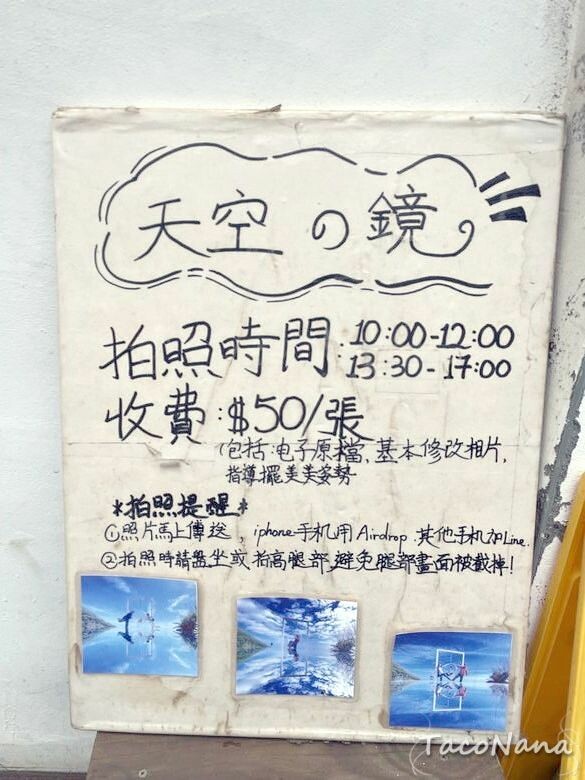 天空の鏡
拍照時間:10:00-12:00
13:30-17:00
收費:$50/張
(包括:电子原檔,基本修改相片,
指導擺美美姿勢
*拍照提醒*
①照片馬上傳送,iphone手机用Airdrop.其他手机加Line.
②拍照時請盤坐或抬高腿部,避免腿部畫面被截掉!
TacoNana